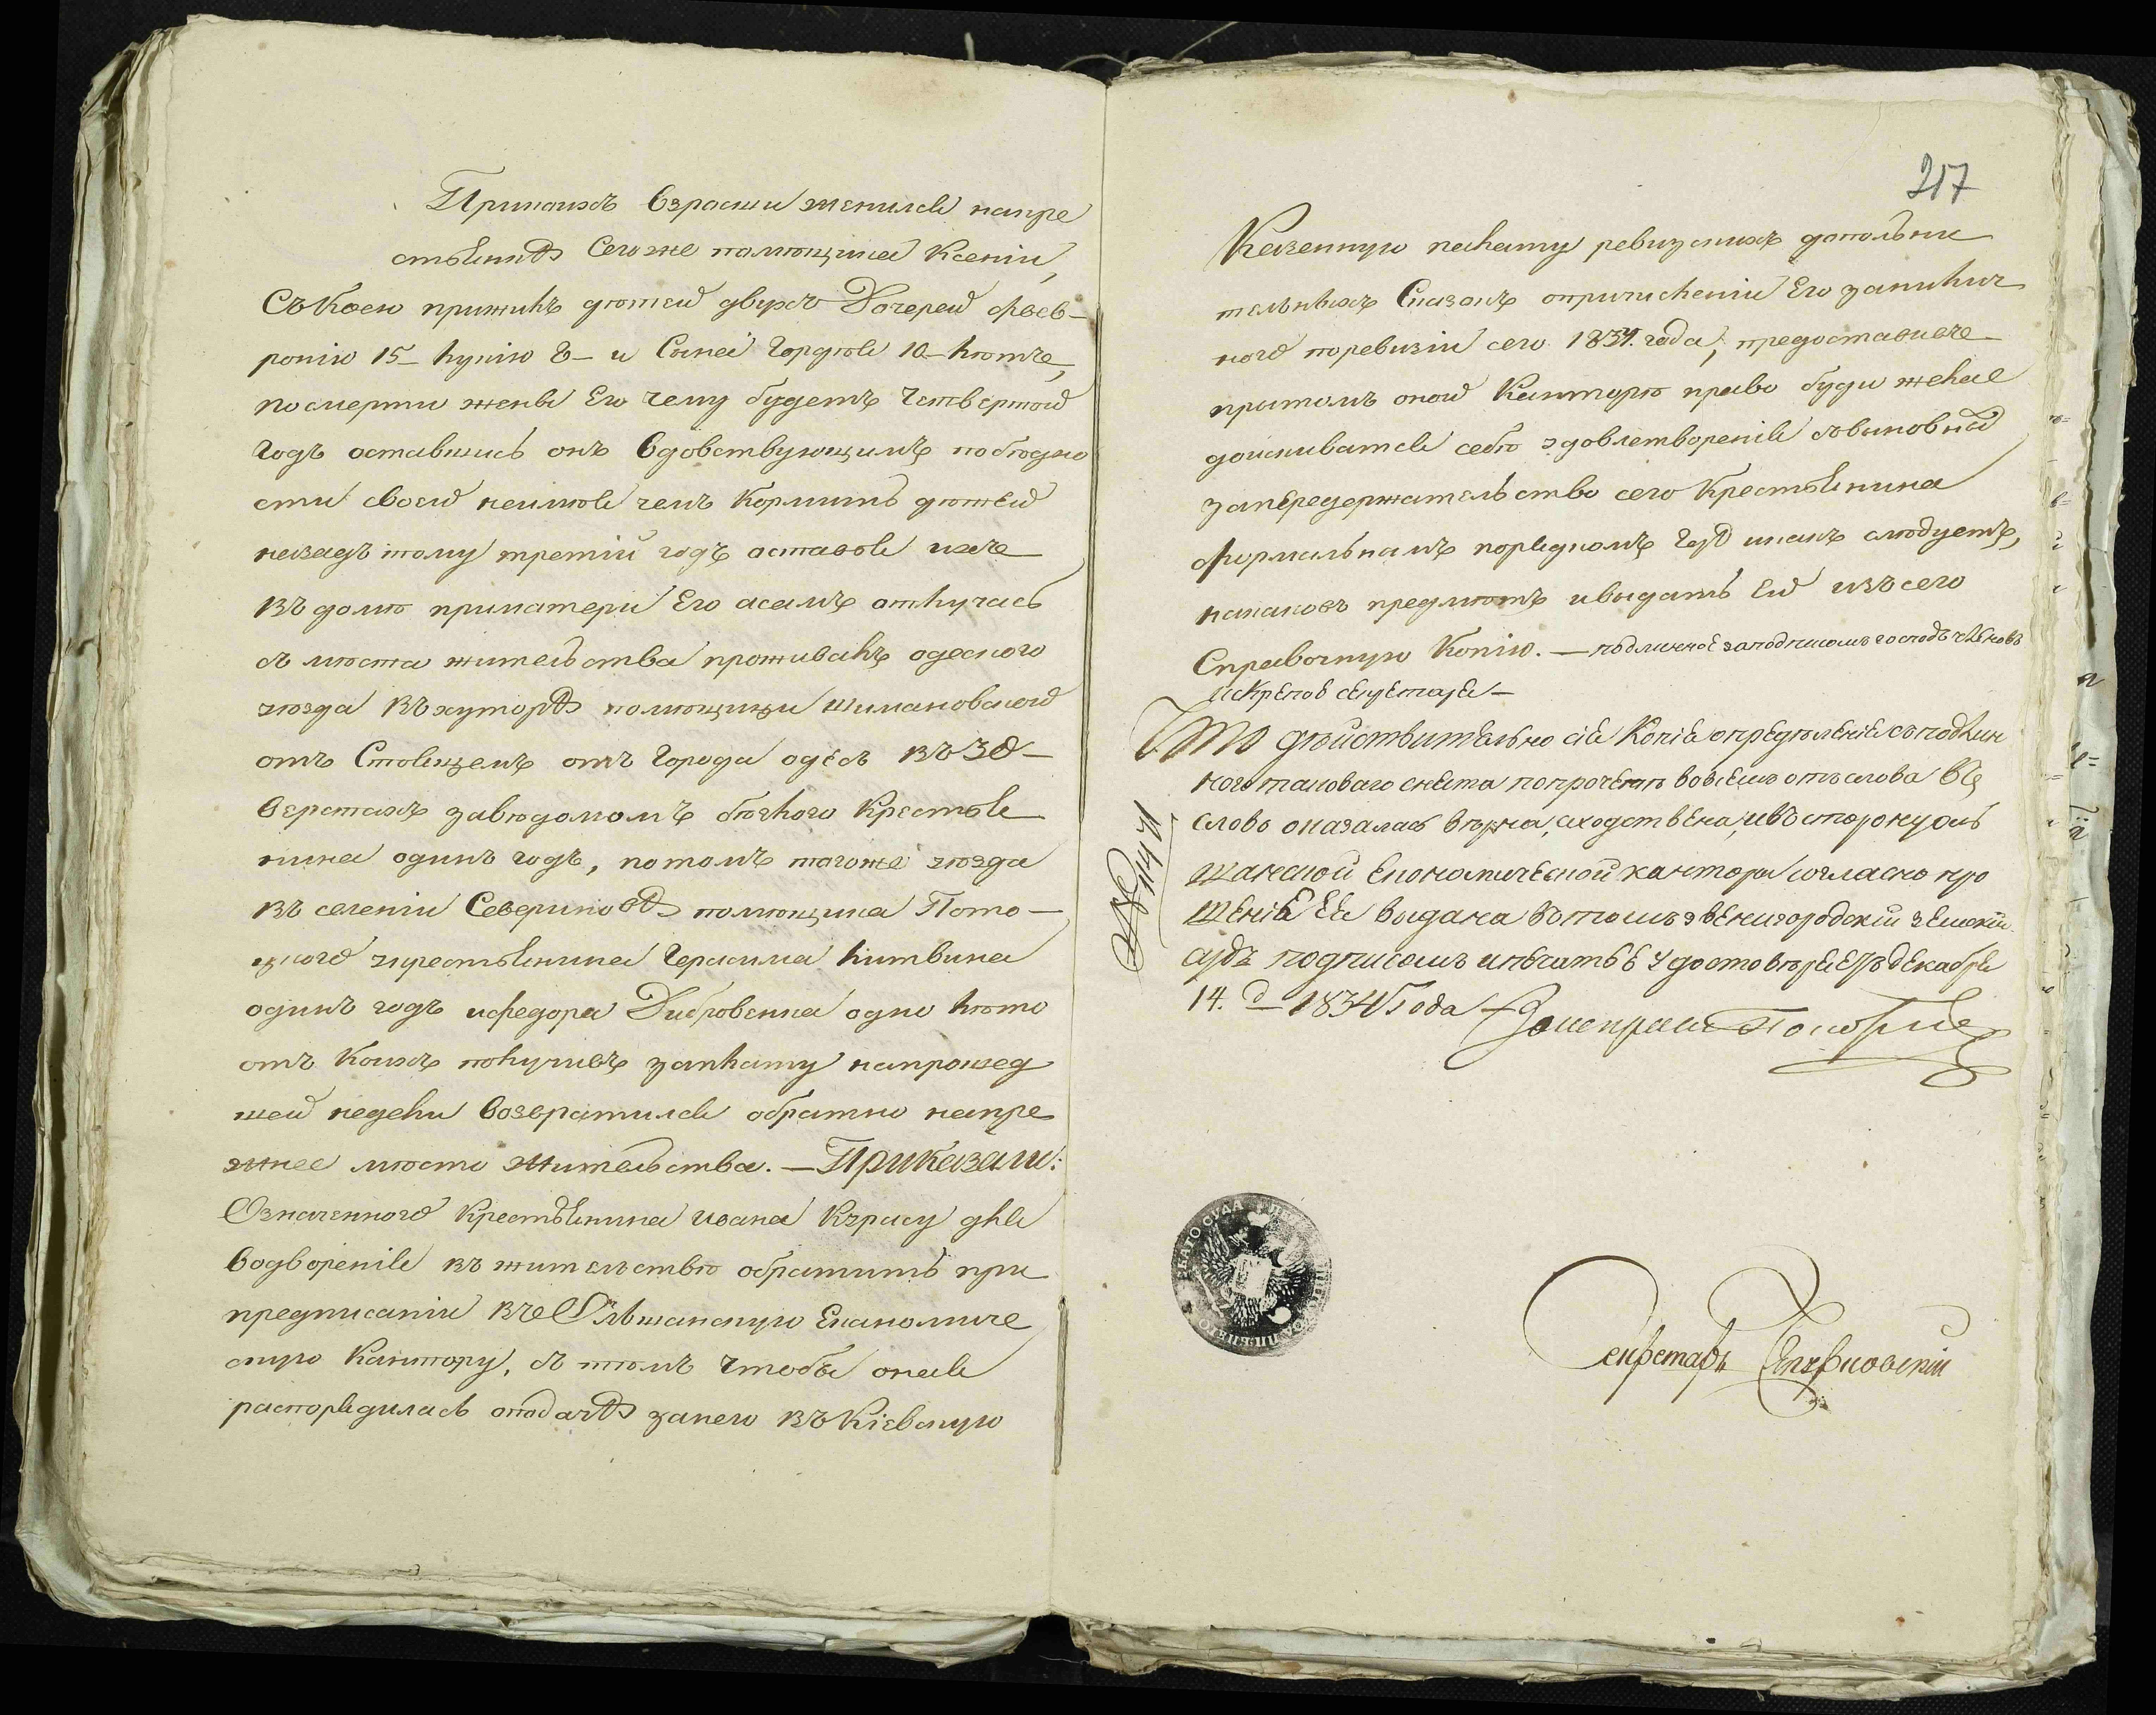 При ихъ взрасти женился напре
стьянкѣ Сегоже помѣщика Ксеніи,
Съ Коею прижилъ дѣтей двухъ Дочерей Фев-
ронію 15- Лукію 8- и Сына Гордѣя 10- лѣтъ,
по смерти жены Его чему будетъ Четвертой
годъ оставшись онъ Вдовствующимъ по бѣдно
сти своей неимѣя чемъ Кормить дѣтей
назадъ тому третій годъ оставя ихъ
въ домѣ приматери Его а самъ отлучась
съ мѣста жительства проживалъ одеского
уѣзда Въ хуторѣ помѣщицы Шимановской
отъ Стоящемъ отъ Города одесъ въ 30-
Верстахъ завѣдомомъ бѣглого Крестья
нина одинъ годъ, потомъ тогоже уѣзда
въ селеніи Севериновѣ помѣщика Пото-
цкого укрестьянина Герасима Литвина
одинъ годъ ифедора Дибровенка одно лѣто
отъ Коихъ получивъ заплату напрошед
шей недели Возвратился обратно напре
жнее мѣсто жительства. — Приказали:
Означенного Крестьянина Ивана Кърпсу для
Водворенія въ жительство обратить при
предписаніи въ Ольшанскую Економиче
скую Кантору, съ темъ чтобы оная
распорядилась оподачѣ занего въ Кіевскую
217
Казенную палату ревизскихъ дополни
тельныхъ Сказокъ опричисленіи Его запилич
ного поревизіи сего 1834. года, предоставивъ
притомъ оной Канторѣ право буди желае
доискиватся себѣ удовлетворенія съвиновной
запередержательство сего Крестьянина
формальнымъ порядкомъ Гдѣ инакъ слѣдуетъ,
накаковъ предмѣтъ ивыдать Ей изъ сего
Справочную Копію. — подлинное заподписомъ господъ членовъ
искрепою секретаря —
Что дѣйствительно сія Копія опредѣленіе съподлин
ного таковаго снята попрочетѣ вовсемъ отъ слова въ
слово оказалась вѣрна, сходственна, ивъсторону оль
шанской Економической канторы согласно про
шенію Ея выдана Вътомъ звенигородскій земскій
судъ подписомъ ипечатью удостовѣряетъ декабря
14. д 1834 Года
№ 11471
Секретарь